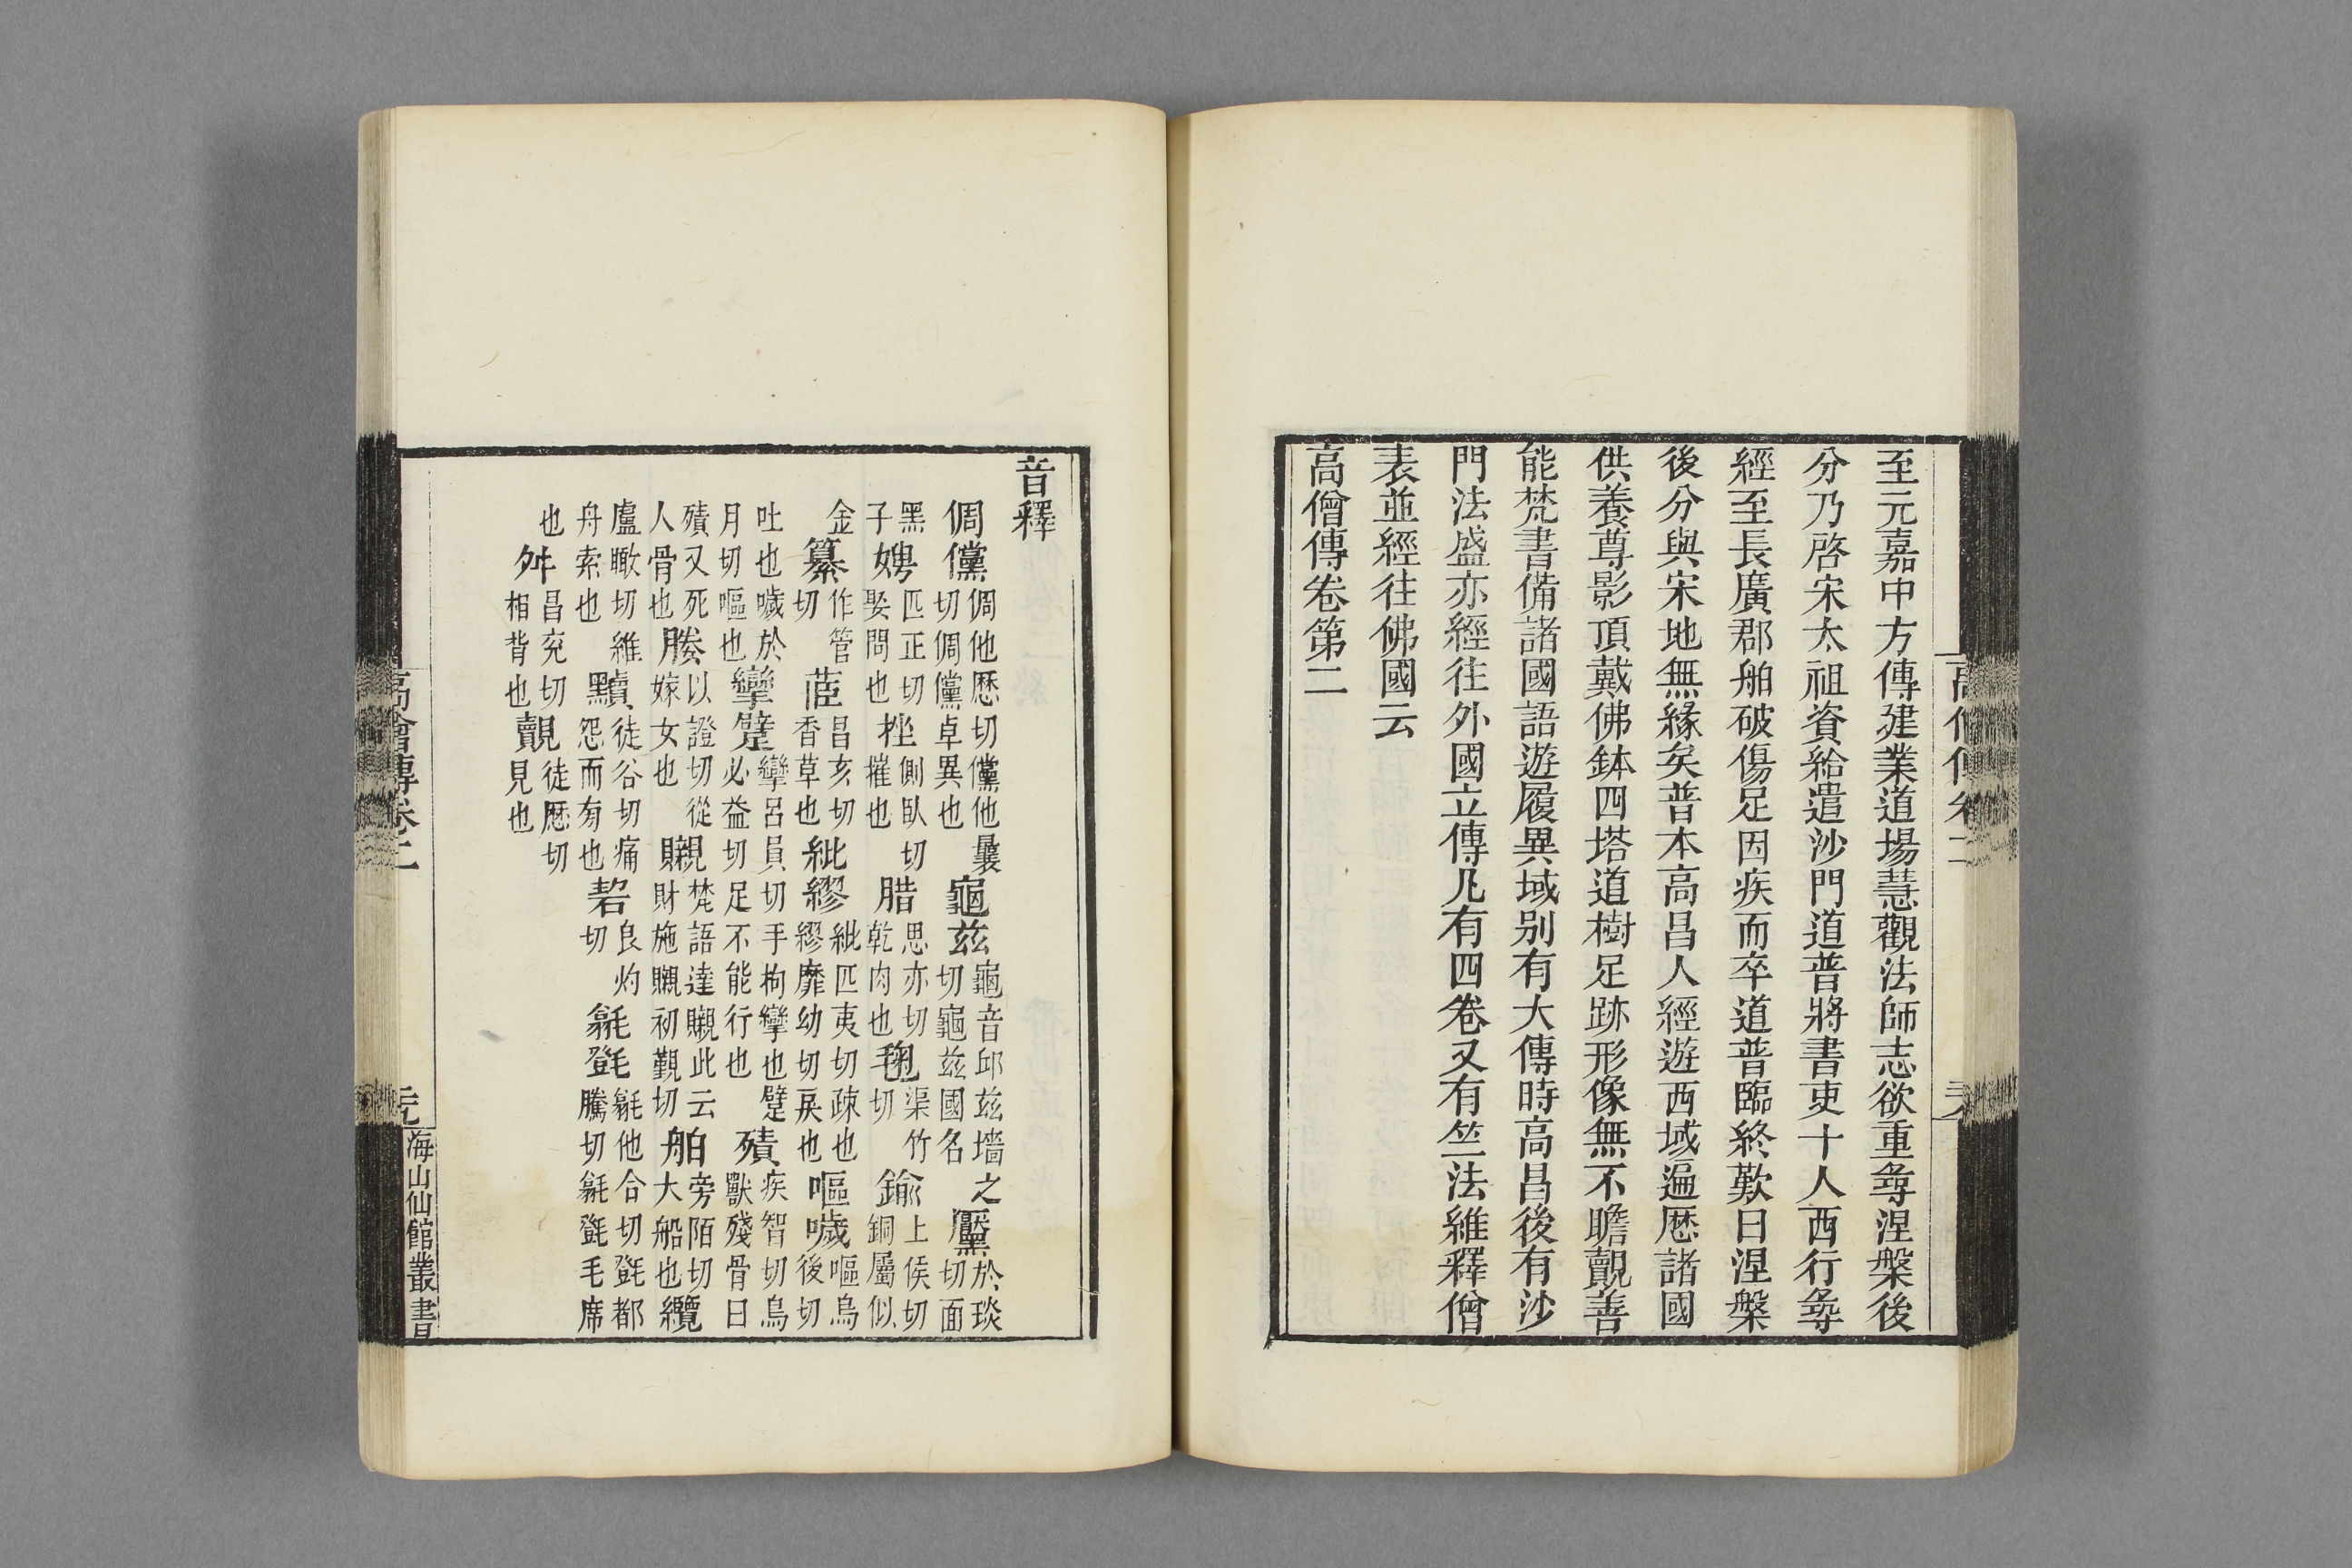 至元嘉中方傳建業道場慧觀法師志欲重尋涅槃後
分乃啓宋太祖資給遣沙門道普將書吏十人西行尋
經至長廣郡舶破傷足因疾而卒道普臨終歎曰涅槃
後分與宋地無緣矣普本高昌人經遊西域遍歷諸國
供養尊影頂戴佛鉢四塔道樹足跡形像無不瞻覿善
能梵書備諸國語遊履異域别有大傳時高昌後有沙
門法盛亦經往外國立傳凡有四卷又有竺法維釋僧
表並經往佛國云
高僧傳卷第二
音釋
倜儻倜他歷切儻他曩切倜儻卓異也龜兹龜音邱兹墻之切龜兹國名黶於琰切面
黑子娉匹正切娶問也挫側臥切摧也腊思亦切乾肉也毱渠竹切鍮上侯切銅屬似
金纂作管切茝昌亥切香草也紕繆紕匹夷切疎也繆靡幼切戾也嘔噦嘔烏後切
吐也噦於月切嘔也攣躄攣呂員切手拘攣也躄必益切足不能行也殨疾智切鳥獸殘骨曰
殨又死人骨也媵以證切從嫁女也䞋梵語達䞋此云財施䞋初覲切舶旁陌切大船也纜
盧瞰切維舟索也黷徒谷切痛怨而謗也䂮良灼切㲲㲪㲲他合切㲪都騰切㲲㲪毛席
也舛昌兖切相背也覿徒歷切見也
高僧傳卷二
元海山仙館叢書